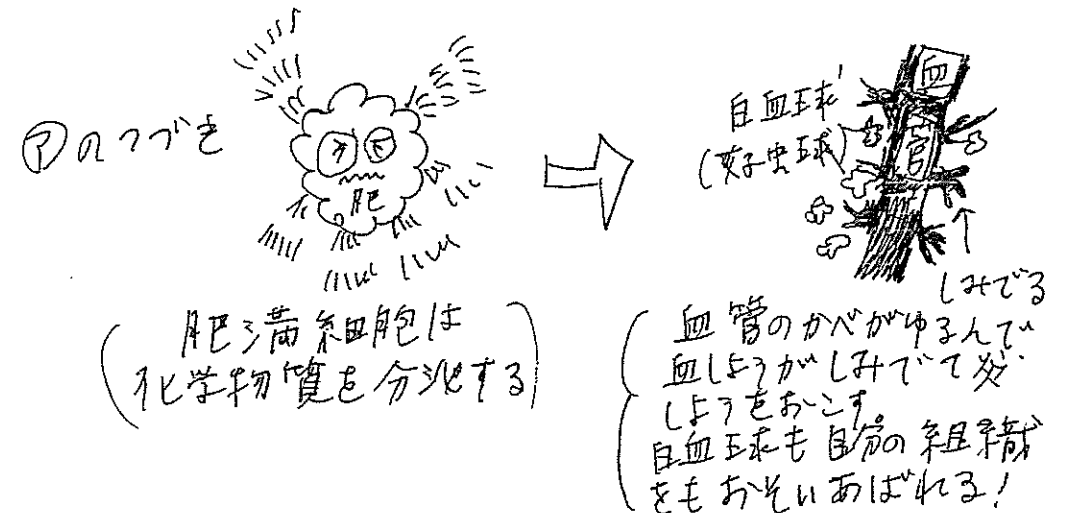 ㋐のつづき
肥
(肥満細胞は
化学物質を分泌する)
血管
白血球
(好中球)
しみでる
(血管のかべがゆるんで
血しょうがしみでて炎
しょうをおこす。
白血球も自分の組織
をもおそいあばれる!